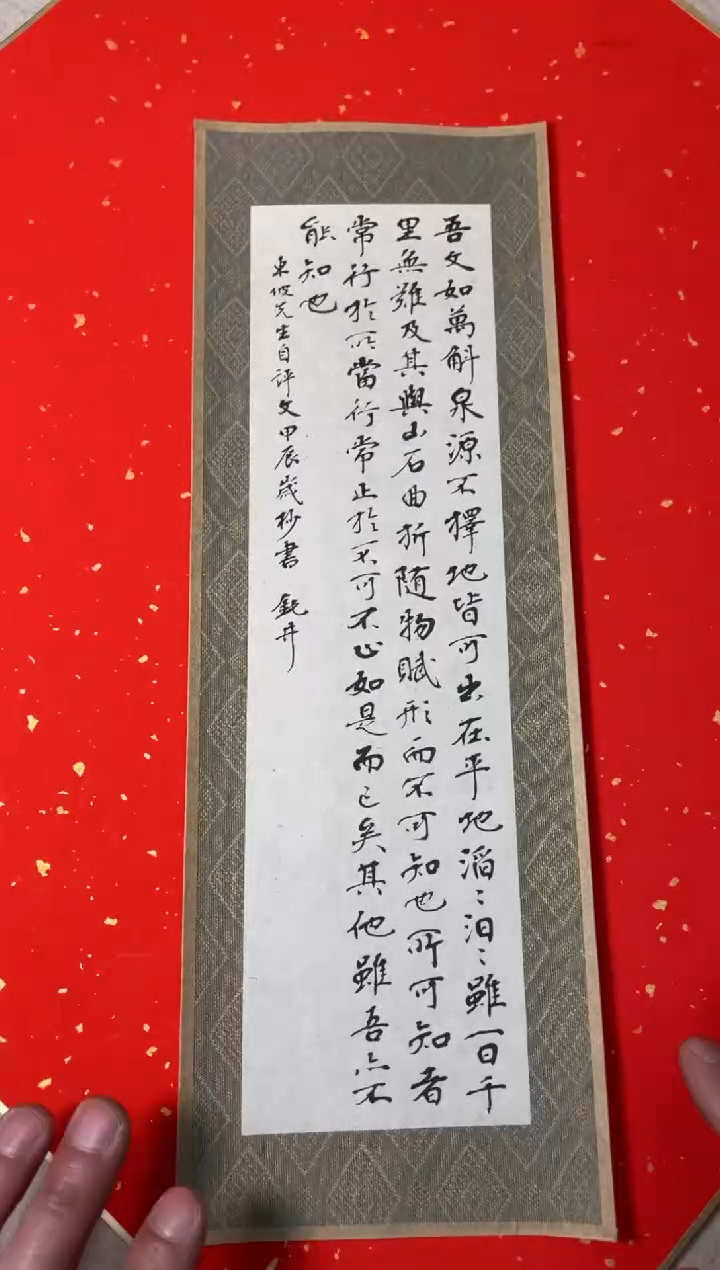 吾文如萬斛泉源不擇地皆可出在平地滔〻汩〻雖一日千
里無難及其與山石曲折随物賦形而不可知也所可知者
常行於所當行常止於不可不止如是而已矣其他雖吾亦不
能知也
東坡先生自評文甲辰歲杪書